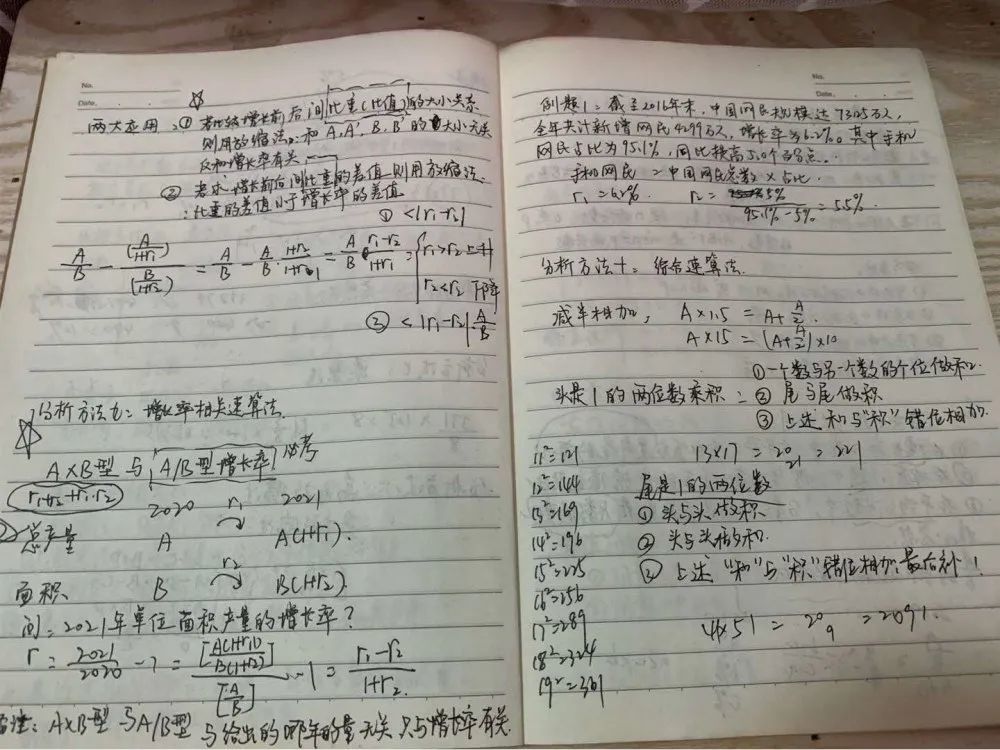 No.
Date
两大应用:① 考比较增长前后,间比重(比值)的大小关系
则用放缩法。:和A,A',B,B'的大小无关
反和增长率有关
② 考求增长前后间比重的差值则用放缩法
:比重的差值小于增长率的差值
① <|r₁-r₂|
A/B - (A/(1+r₁))/(B/(1+r₂)) = A/B - A/B · (1+r₂)/(1+r₁) = A/B · (r₁-r₂)/(1+r₁) = { r₁>r₂ 上升
r₂<r₂ 下降
② <|r₁-r₂| A/B
分析方法七:增长率相关速算法
A×B型 与 A/B型增长率 必考
r₁+r₂+r₁·r₂
2020 r₁ 2021
总产量 A A(1+r₁).
r₂
面积 B B(1+r₂)
问:2021年单位面积产量的增长率?
r = 2021/2020 - 1 = [A(1+r₁)/B(1+r₂)]/[A/B] - 1 = (r₁-r₂)/(1+r₂)
注:A×B型 与A/B型 与给出的哪年的量无关 只与增长率有关.
No.
Date
例题1:截至2016年末,中国网民规模达73125万人,
全年共计新增网民4299万人,增长率为6.2%。其中手机
网民占比为95.1%,同比提高5.0个百分点。
手机网民 = 中国网民总数 × 占比
r₁ = 6.2% r₂ = 5%/(95.1%-5%) = 5.5%.
分析方法十:综合速算法.
减半相加, A×1.5 = A+A/2.
A×15 = (A+A/2)×10
① 一个数与另一个数的个位做和.
头是1的两位数乘积: ② 尾与尾做积
③ 上述和与"积"错位相加.
11²=121
13×17 = 20
21 = 221
12²=144
尾是1的两位数
13²=169
① 头与头做积
14²=196
② 头与头做和.
15²=225
③ 上述"和"与"积"错位相加,最后补1
16²=256
17²=289
41×51 = 20
9 = 2091.
18²=324
19²=361